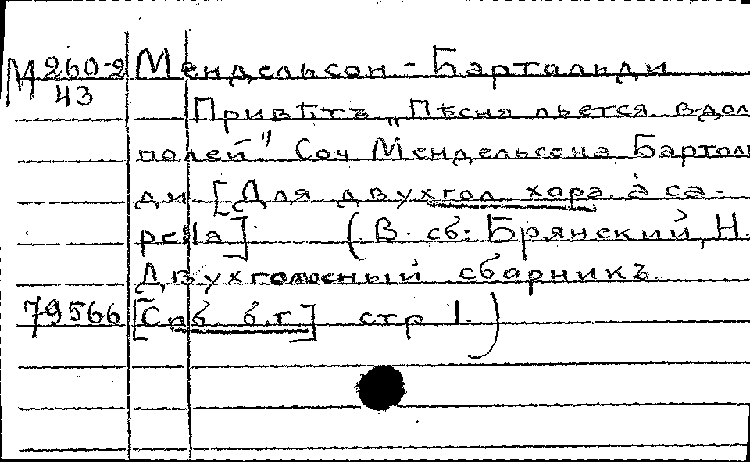 М 260-2 Мендельсон-Бартольди
43 Привѣтъ „Пѣсня льется вдол
полей" Соч Мендельсона Бартоль
ди [Для двухгол хора а са-
pella] (В сб: Брянский, Н.
Двухголосный сборникъ
79566 [Спб б.г] стр 1.)